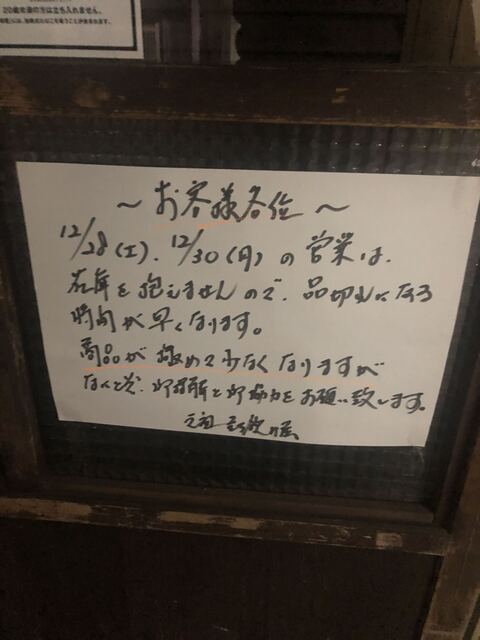 20歳未満の方は立ち入れません。
～お客様各位～
12/28(土)、12/30(月)の営業は、
在庫を抱えませんので、品切れになる
時間が早くなります。
商品が極めて少なくなりますが
なにとぞ、御理解と御協力をお願い致します。